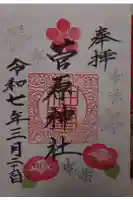 奉拝
菅原神社
令和七年三月二十日